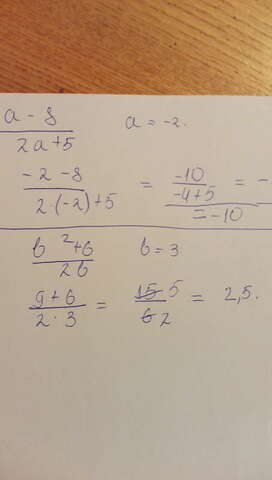 a - 8 / 2a + 5    a = -2.
-2 - 8 / 2·(-2) + 5 = -10 / -4+5 = -
= -10
b² + 6 / 2b    b = 3
9 + 6 / 2·3 = 15 5 / 6 2 = 2,5.